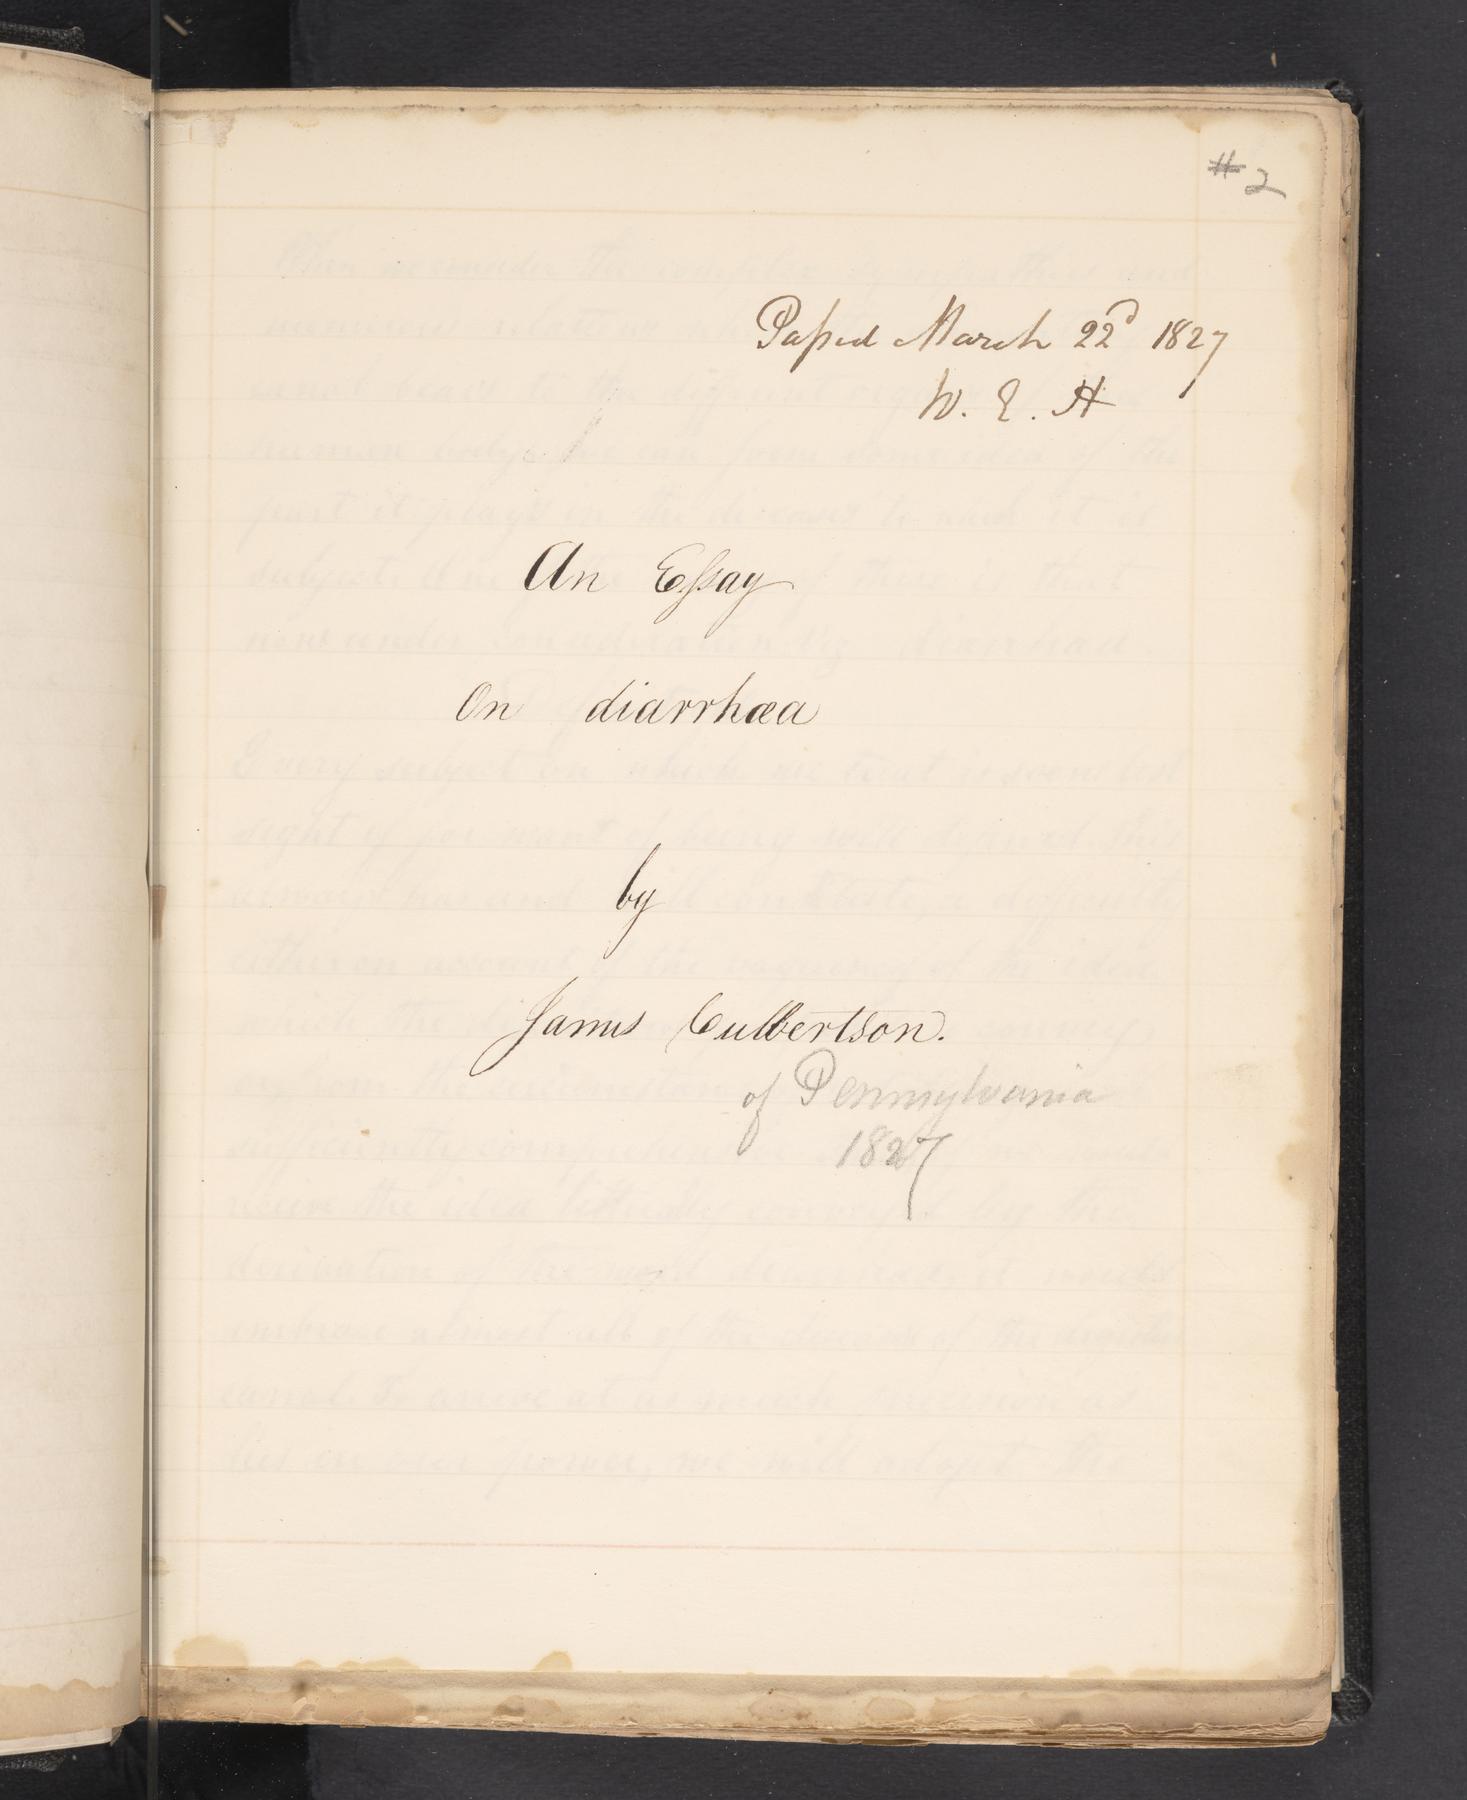 #2
Passed March 22d 1827
W. E. H
An Essay
On diarrhœa
by
James Culbertson.
of Pennsylvania
1827